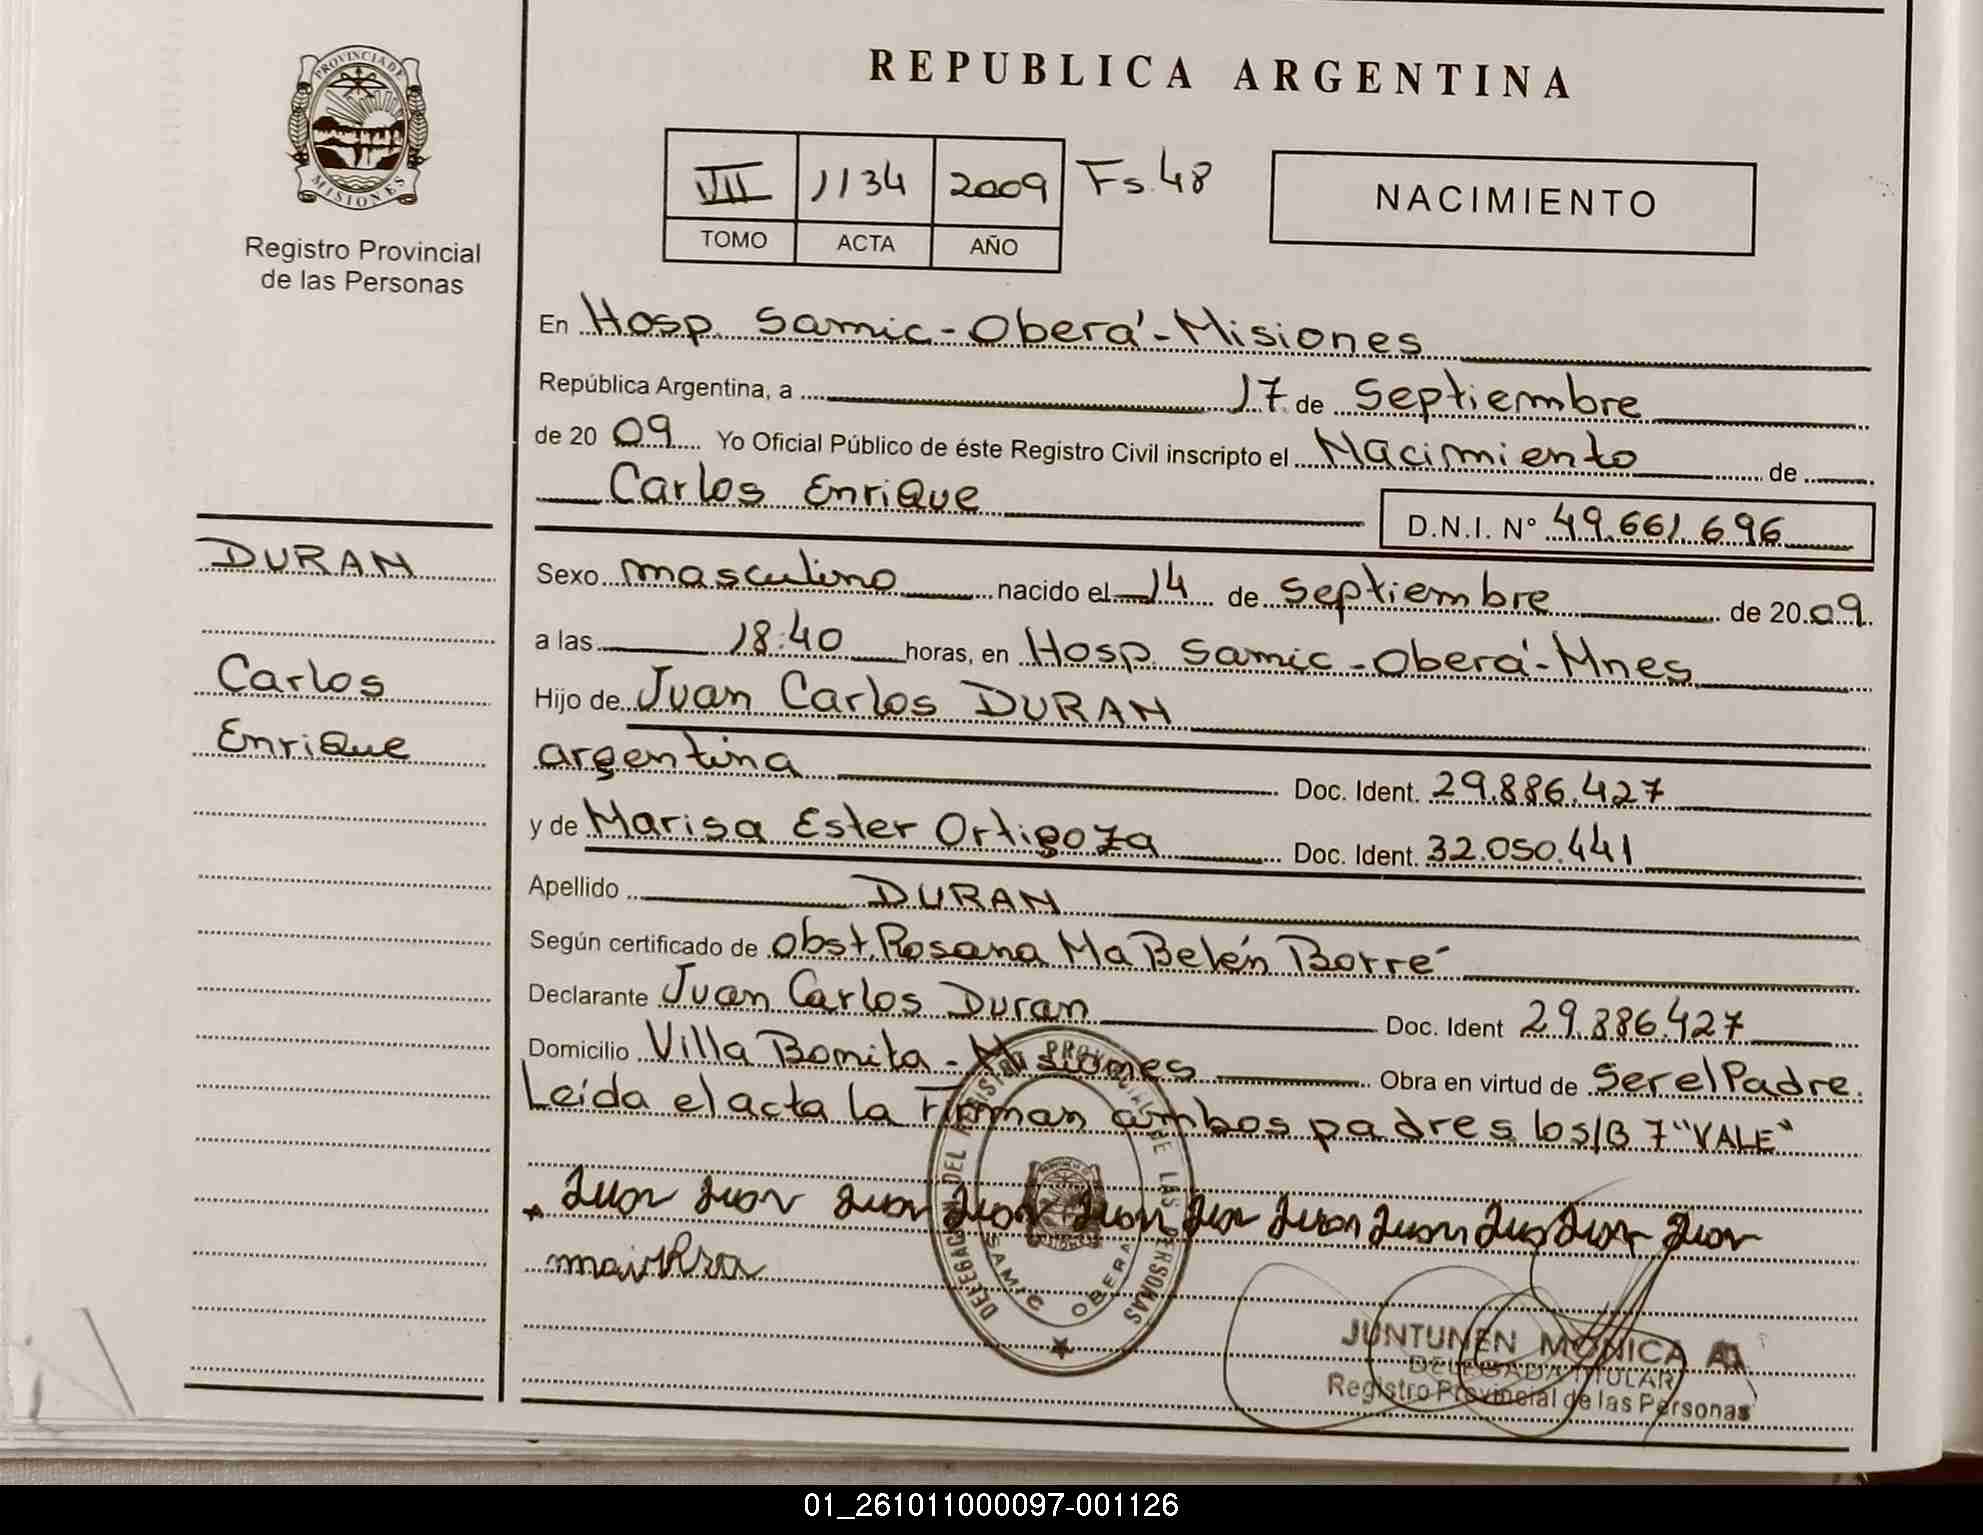 PROVINCIA DE
MISIONES
Registro Provincial
de las Personas
DURAN
Carlos
EnriQue
REPUBLICA ARGENTINA
VII 1134 2009 Fs.48
TOMO ACTA AÑO
NACIMIENTO
En Hosp. Samic-Oberá-Misiones
República Argentina, a 17 de Septiembre
de 2009 Yo Oficial Público de éste Registro Civil inscripto el Nacimiento de
Carlos EnriQue D.N.I. N° 49.661.696
Sexo masculino nacido el 14 de Septiembre de 2009
a las 18:40 horas, en Hosp. Samic-Oberá-Mnes
Hijo de Juan Carlos DURAN
argentina Doc. Ident. 29.886.427
y de Marisa Ester Ortigoza Doc. Ident. 32.050.441
Apellido DURAN
Según certificado de obst. Rosana Ma Belén Borré
Declarante Juan Carlos Duran Doc. Ident 29.886.427
Domicilio Villa Bonita - Misiones Obra en virtud de Ser el Padre.
Leída el acta la Firman ambos padres los/B 7 "VALE"
Juan Juan Juan Juan Juan Juan Juan Juan Juan Juan Juan
DELEGACION DEL REGISTRO PROVINCIAL DE LAS PERSONAS
SAMIC OBERA
JUNTUNEN MONICA A.
DELEGADA TITULAR
Registro Provincial de las Personas
01_261011000097-001126